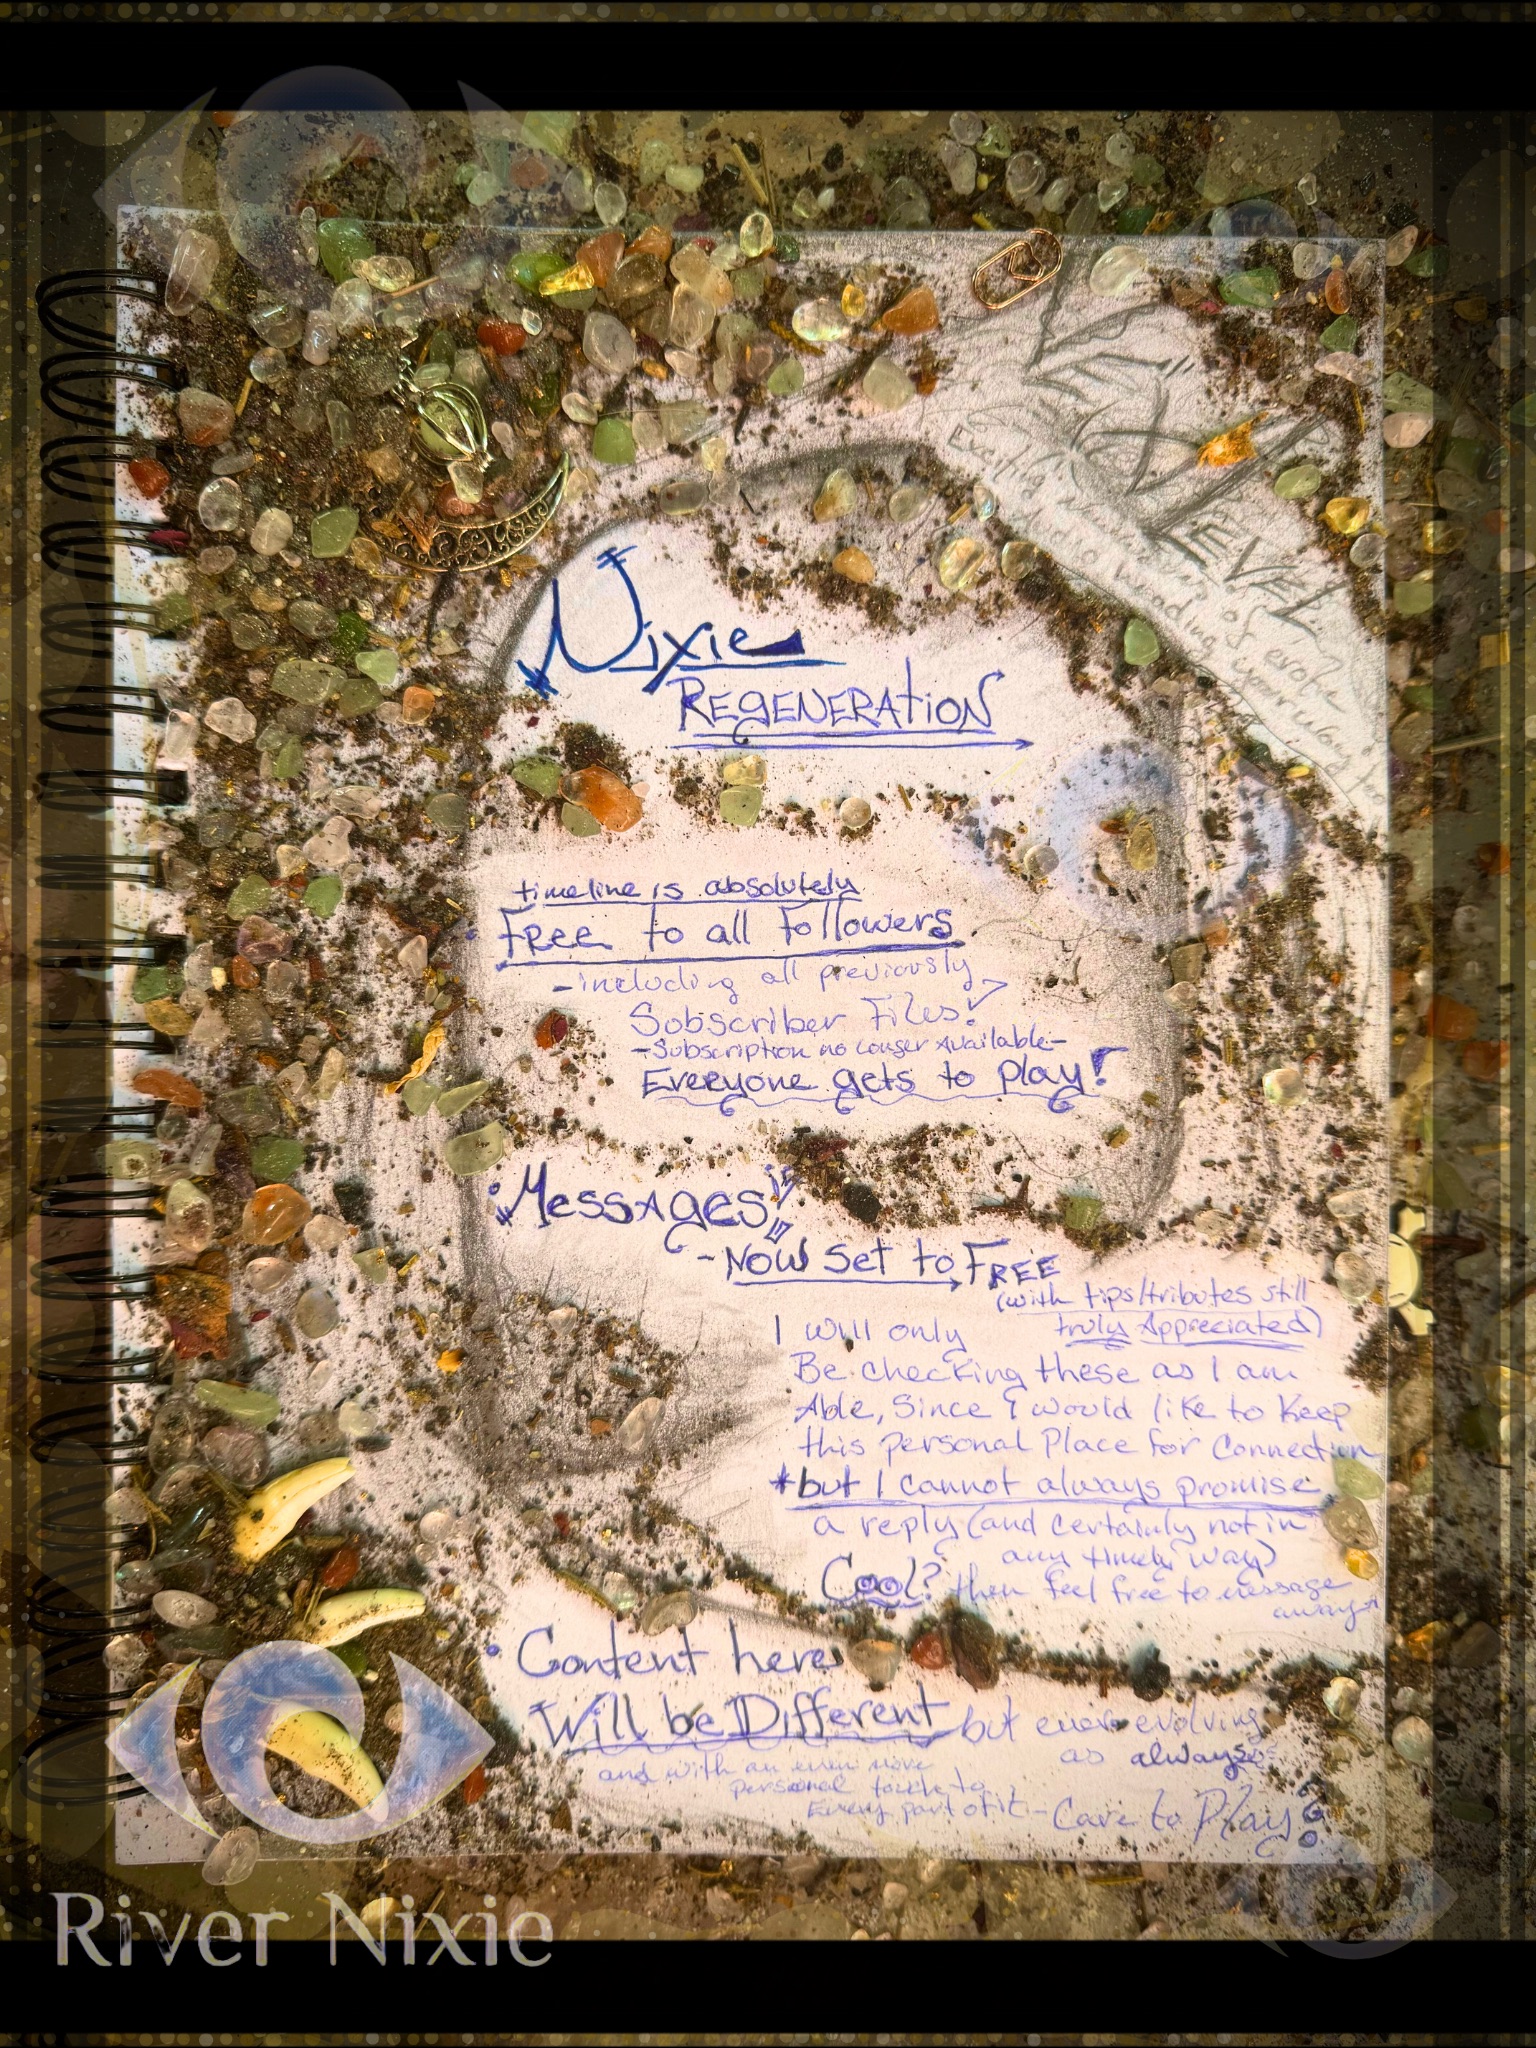 Nixie
REGENERATION
timeline is absolutely
• Free to all Followers.
- including all previously
Subscriber Files!
- Subscription no longer Available -
Everyone gets to play!
• Messages!
- Now Set to FREE
(with tips/tributes still
truly Appreciated)
I will only
Be checking these as I am
Able, Since I would like to Keep
this personal Place for Connection
*but I cannot always promise
a reply (and certainly not in
any timely way)
Cool? then feel free to message
away
• Content here
Will be Different but ever evolving
as always
and with an even more
personal touch to
Every part of it - Care to Play?
River Nixie